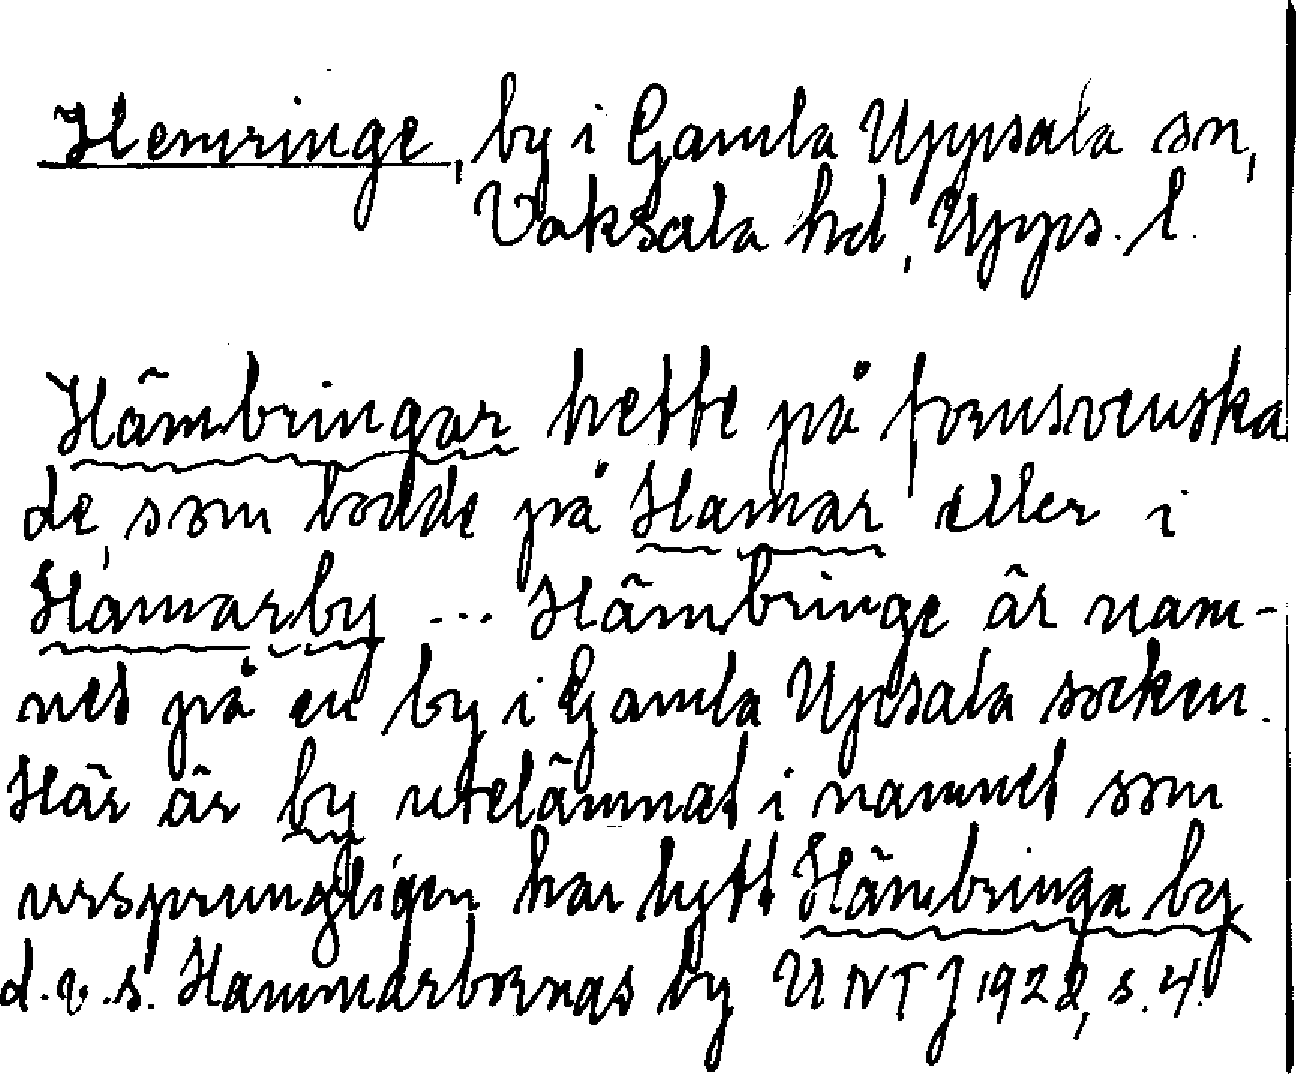 Hemringe, by i Gamla Uppsala sn,
Vaksala hd, Upps. l.
Hämbringar hette på fornsvenska
de, som bodde på Hamar eller i
Hamarby ... Hämbringe är nam-
net på en by i Gamla Upsala socken.
Här är by utelämnat i namnet som
ursprungligen har lytt Hämbringa by
d.v.s. Hammarbornas by UNTJ 1922, s. 4.